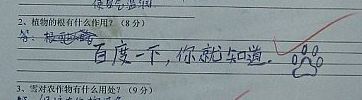 2、植物的根有什么作用?(8分)
答:
百度一下,你就知道.
3、雪对农作物有什么用处?(9分)